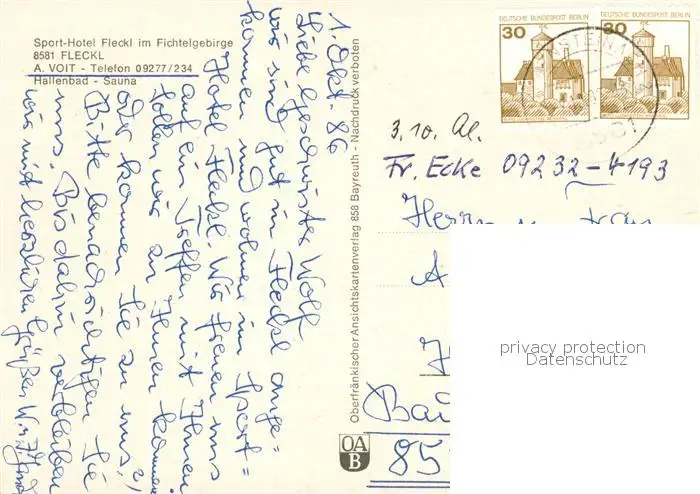 Sport-Hotel Fleckl im Fichtelgebirge
8581 FLECKL
A. VOIT - Telefon 09277/234
Hallenbad - Sauna
1. Okt. 86
Liebe Geschwister Wolf
wir sind gut in Fleckl ange=
kommen und wohnen im Sport=
Hotel Fleckl. Wir freuen uns
auf ein Treffen mit Ihnen
sollen wir zu Ihnen kommen
oder kommen Sie zu uns?
Bitte benachrichtigen Sie
uns. Bis dahin verbleiben
wir mit herzlichen Grüßen
Oberfränkischer Ansichtskartenverlag 858 Bayreuth - Nachdruck verboten
OA
B
DEUTSCHE BUNDESPOST BERLIN
30
DEUTSCHE BUNDESPOST BERLIN
30
3.10. Al.
Fr. Ecke 09232-4193
Herrn u. Frau
A
Bau
85
privacy protection
Datenschutz